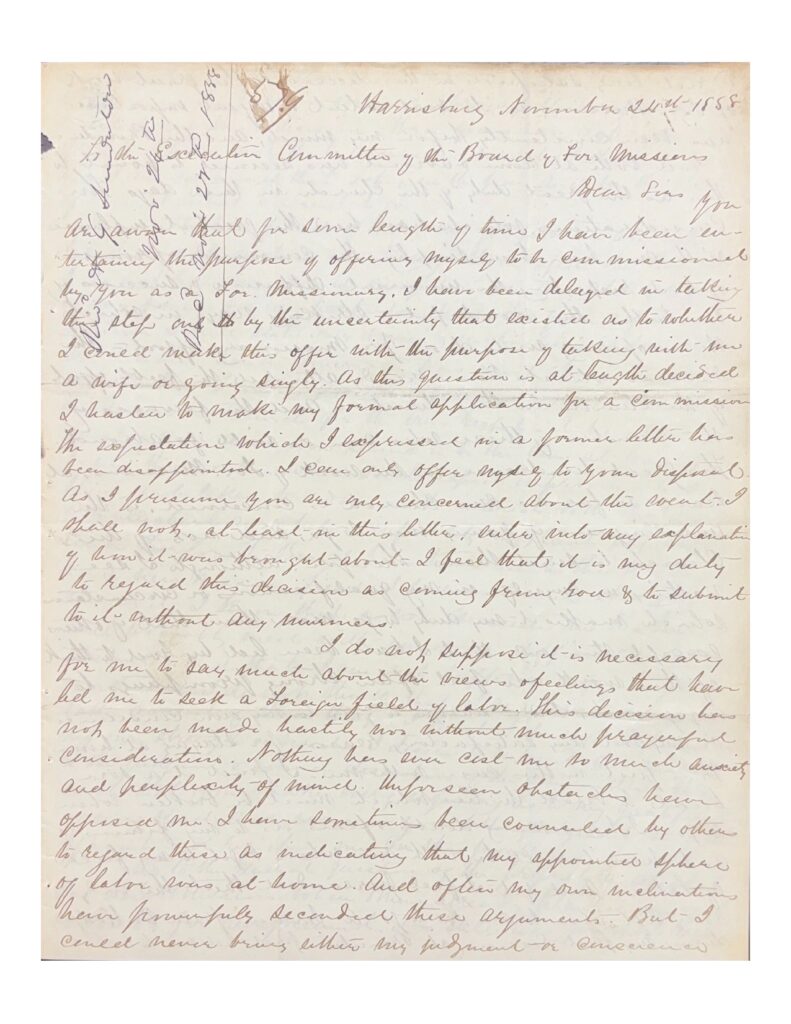 Harrisburg November 24th 1858
To the Executive Committee of the Board of For. Missions
Dear Sirs You
are aware that for some length of time I have been en-
tertaining the purpose of offering myself to be commissioned
by you as a For. Missionary. I have been delayed in taking
this step only by the uncertainty that existed as to whether
I could make this offer with the purpose of taking with me
a wife or going singly. As this question is at length decided
I hasten to make my formal application for a commission
The expectation which I expressed in a former letter has
been disappointed. I can only offer myself to your disposal.
As I presume you are only concerned about the event. I
shall not, at least in this letter, enter into any explanation
of how it was brought about. I feel that it is my duty
to regard this decision as coming from God & to submit
to it without any murmers
I do not suppose it is necessary
for me to say much about the views & feelings that have
led me to seek a Foreign field of labor. This decision has
not been made hastily nor without much prayerful
consideration. Nothing has ever cost me so much anxiety
and perplexity of mind. Unforseen obstacles have
opposed me. I have sometimes been counseled by others
to regard these as indicating that my appointed sphere
of labor was at home. And often my own inclinations
have powerfully seconded these arguments. But I
could never bring either my judgment or conscience
Nov. 24th
Rec. Nov. 1858